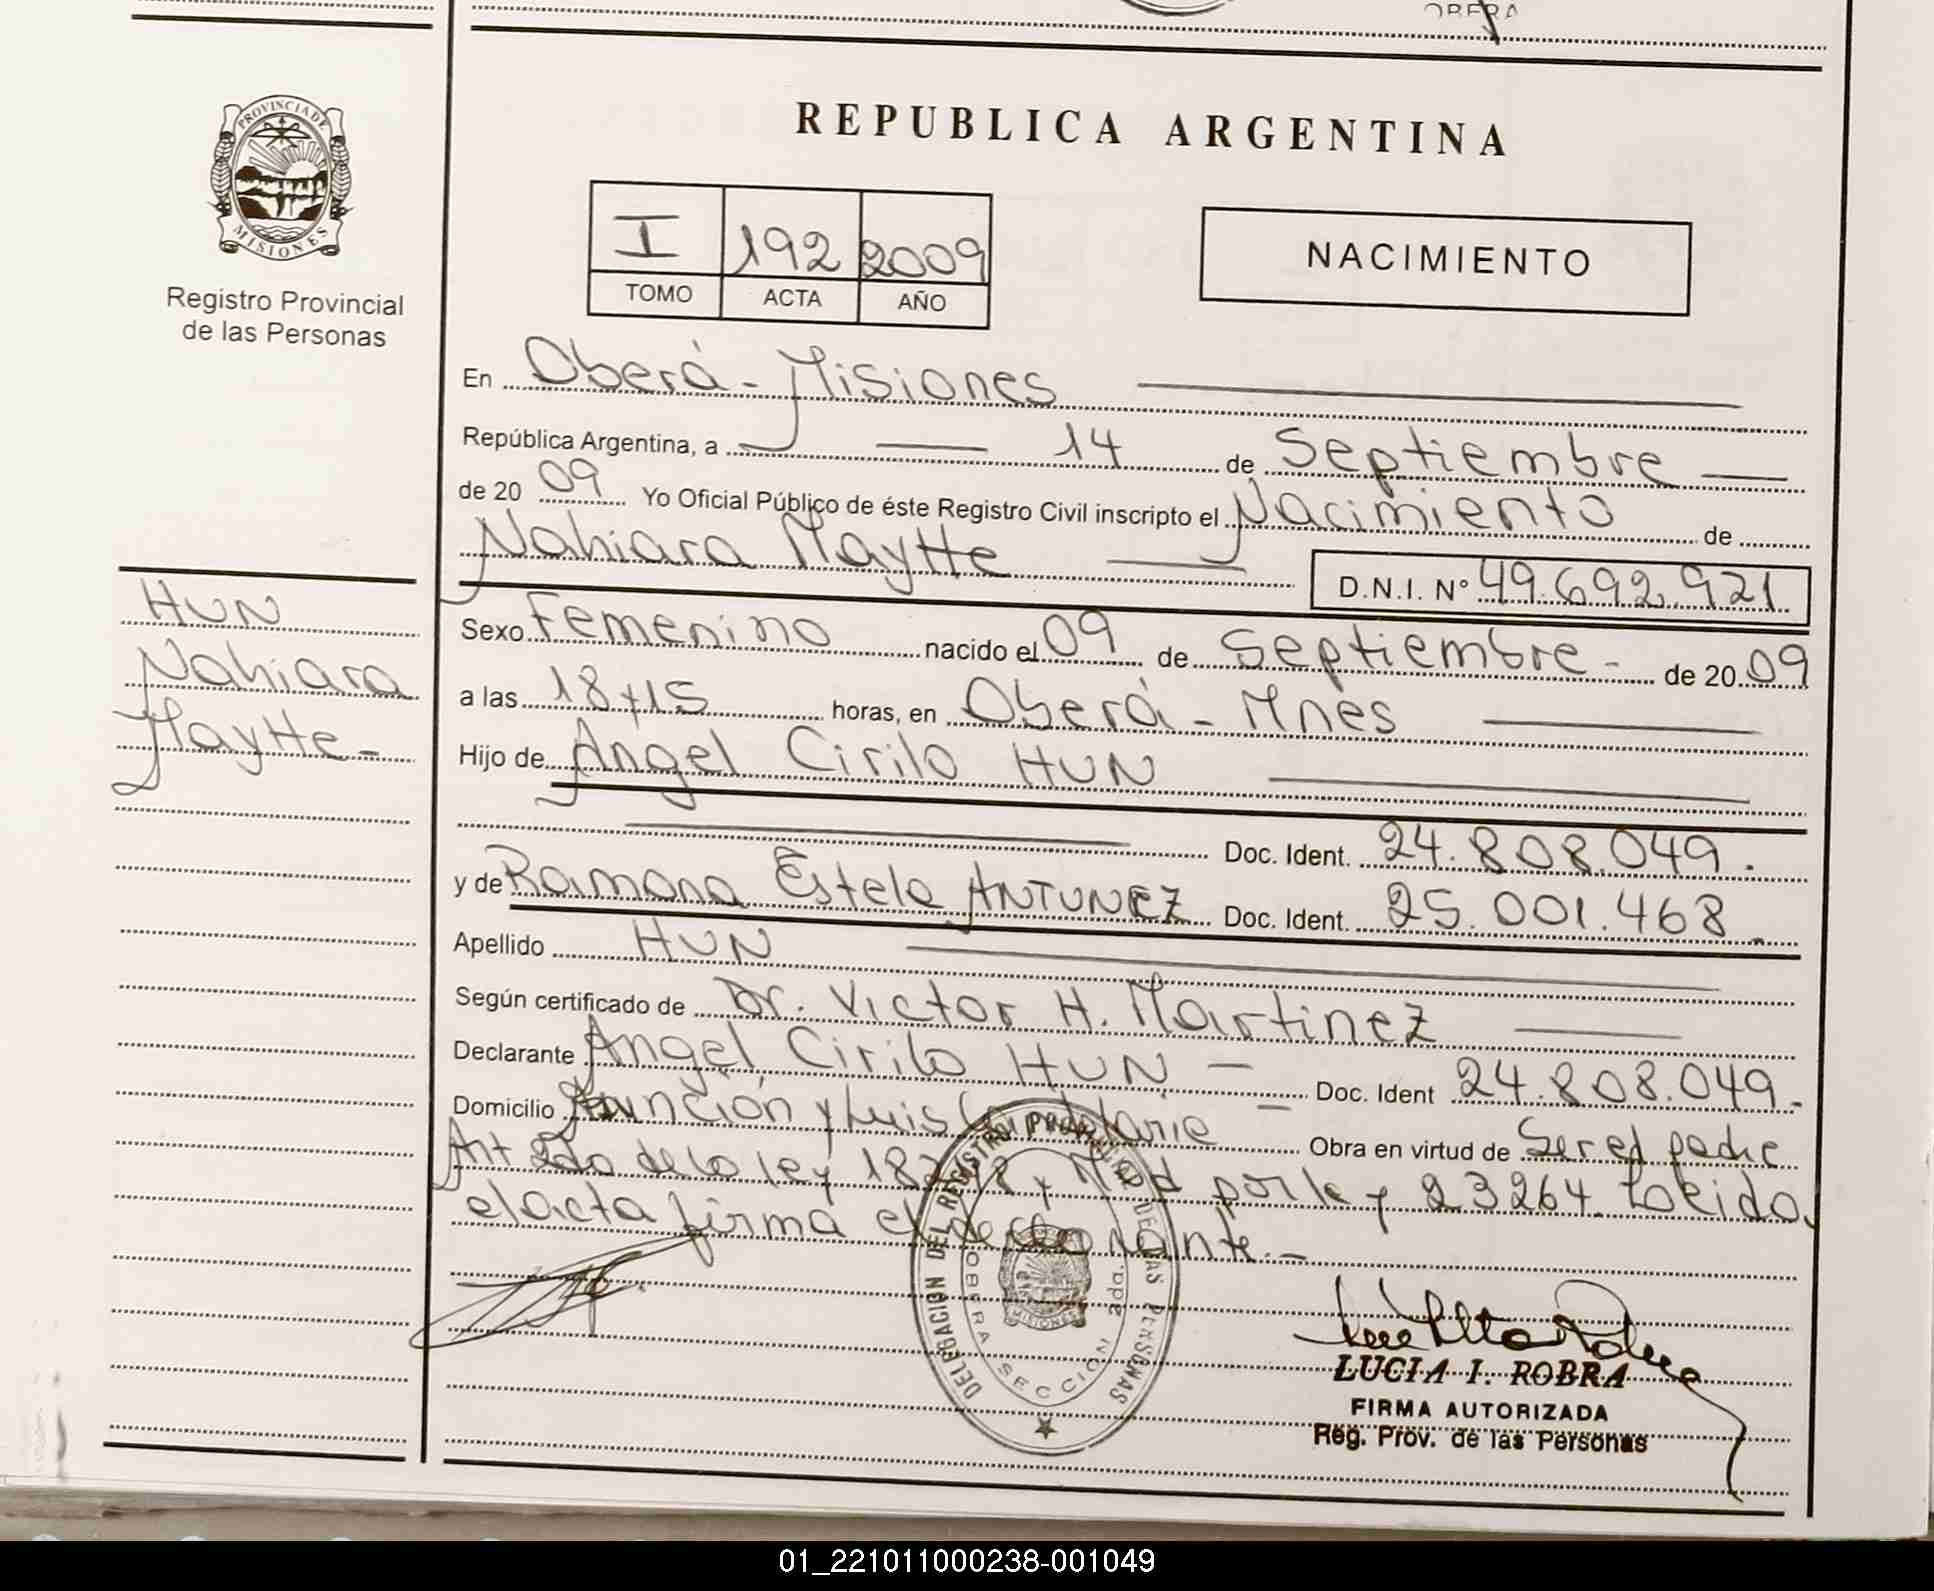 OBERA
REPUBLICA ARGENTINA
PROVINCIA DE MISIONES
Registro Provincial
de las Personas
I 192 2009
TOMO ACTA AÑO
NACIMIENTO
En Oberá - Misiones
República Argentina, a 14 de Septiembre
de 20 09 Yo Oficial Público de éste Registro Civil inscripto el Nacimiento de
Nahiara Maytte D.N.I. Nº 49.692.921
HUN
Nahiara
Maytte -
Sexo Femenino nacido el 09 de Septiembre - de 20 09
a las 18 y 15 horas, en Oberá - Mnes
Hijo de Angel Cirilo HUN
Doc. Ident. 24.808.049.
y de Ramona Estela ANTUNEZ Doc. Ident. 25.001.468
Apellido HUN
Según certificado de Dr. Victor H. Martinez
Declarante Angel Cirilo HUN - Doc. Ident 24.808.049.
Domicilio y Luis Obra en virtud de Ser el padre
Art 2do de la ley y Mod por ley 23264. Loeido
el acta firma el declarante. -
DELEGACION DEL REGISTRO PROVINCIAL DE LAS PERSONAS
OBERA SECCION 2da.
MISIONES
LUCIA I. ROBRA
FIRMA AUTORIZADA
Reg. Prov. de las Personas
01_221011000238-001049